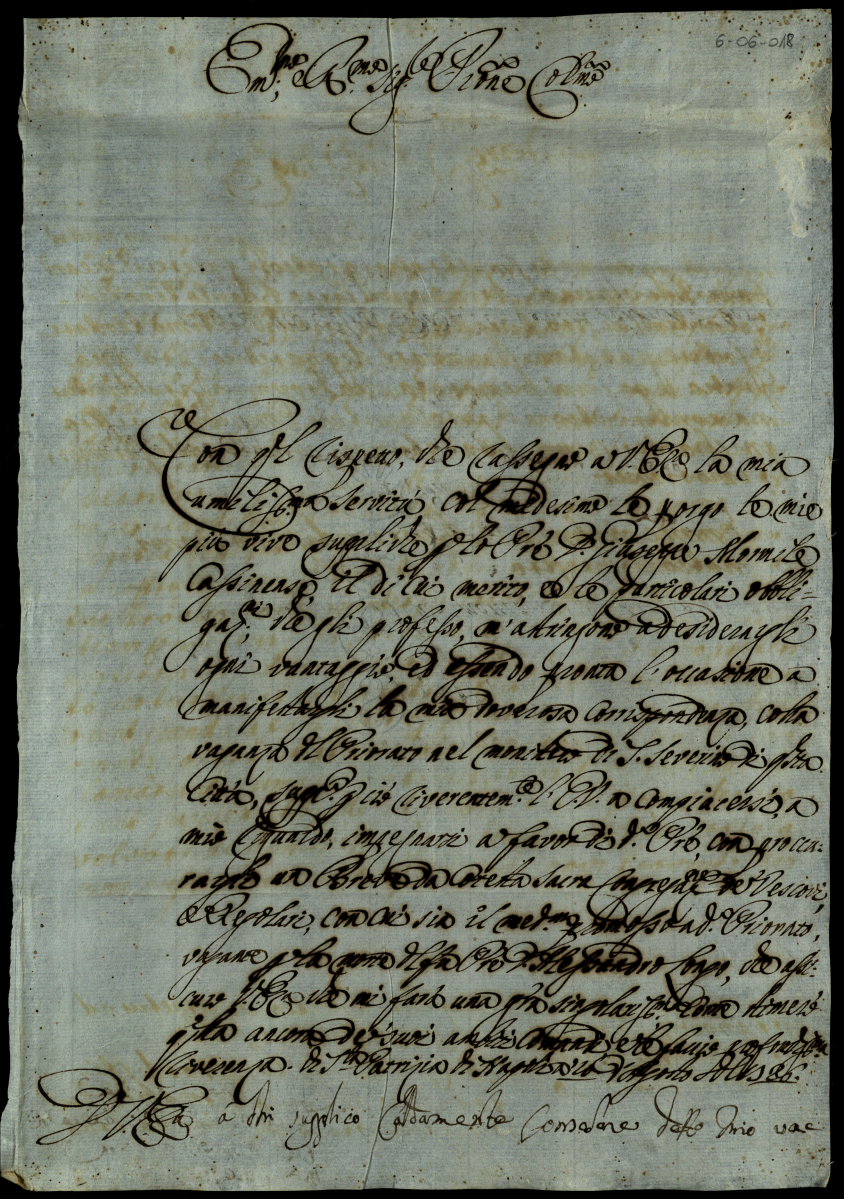 6-06-018
Em.mo e R.mo Sig.r Pr̃one Col.mo
Con q̃l rispetto, che rassegno a V. Em.a la mia
umiliss.ma servitù, col medesimo le porgo le mie
più vive suppliche p̃ lo P̃re D. Giuseppe Mormile
Cassinense, il di cui merito, e le particolari obbli-
gaz.ni che gli professo, m'astringono a desiderargli
ogni vantaggio, ed essendo pronta l'occasione a
manifestargli la mia doverosa corrispondenza, colla
vaganza del Priorato nel monistero di S. Severino di q̃sta
Città, sup.co p̃ciò riverentem.te l'E. V. a compiacersi, a
mio riguardo, impegnarsi a favor di d.o P̃re, con procu-
rargli un Breve da cotesta Sacra Congregaz.ne de' Vescovi,
e Regolari, con cui sia il med.mo promosso a d.o Priorato,
vacante p̃ la morte del fu P̃re D. Alessandro Longo, che assi-
curo V. Em.a che mi farà una gr̃a singolariss.ma come stimerò
q̃lla ancora de' suoi ambiti comandi, e le faccio profondiss.ma
riverenza. di S.ta Patrizia di Napoli
D. V. Em.a a chi supplico caldamente